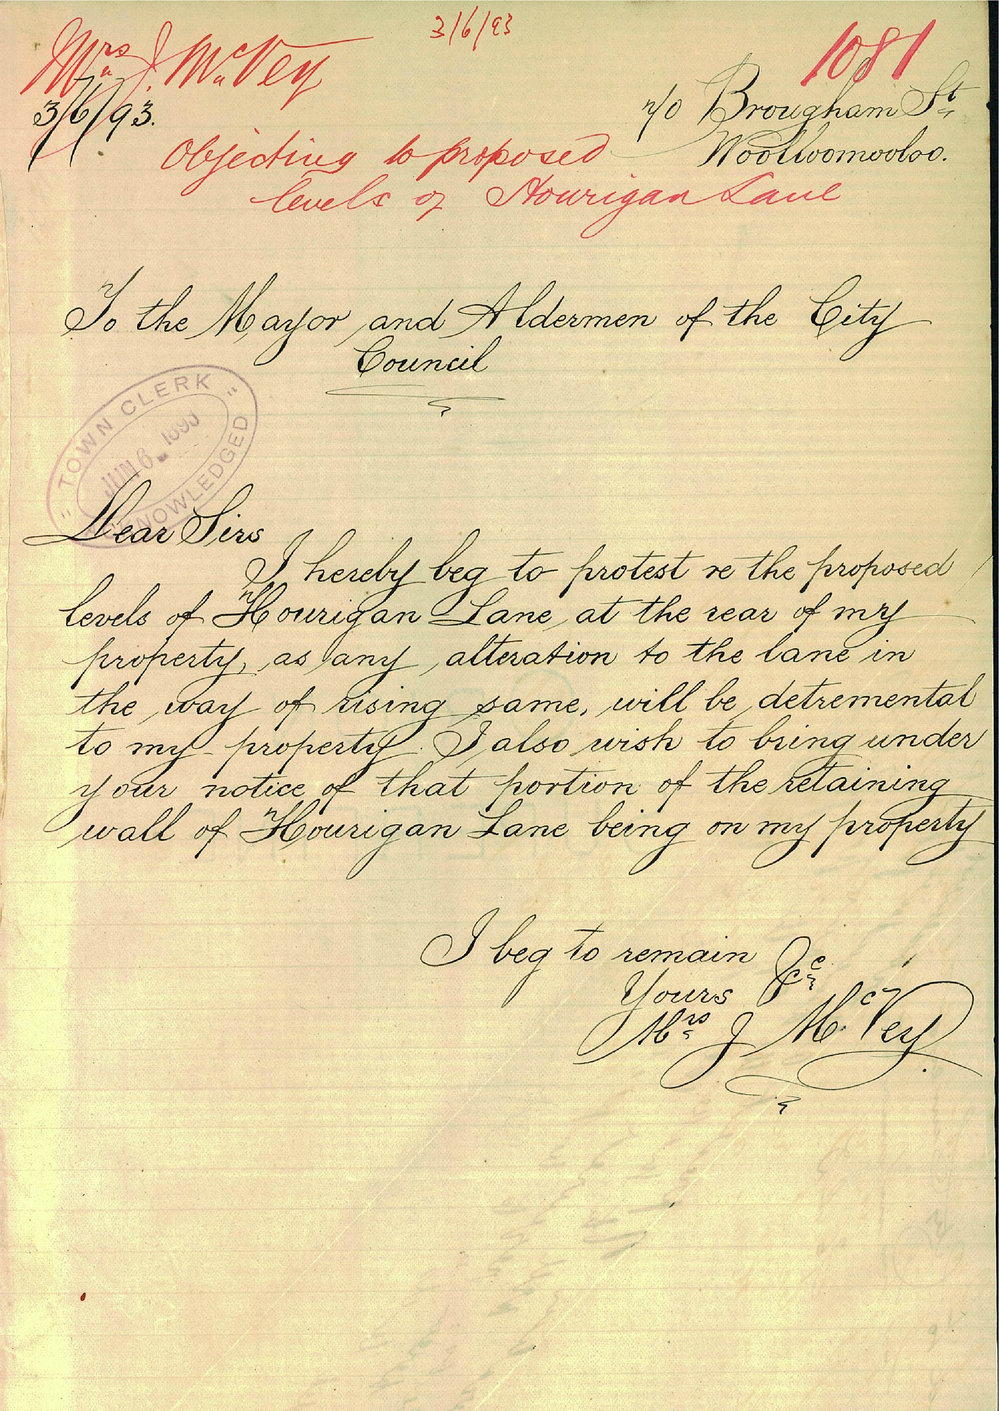 3/6/93
Mrs J. McVey
1081
3/6/93.
Brougham St
Woolloomooloo.
Objecting to proposed
levels of Hourigan Lane
To the Mayor and Aldermen of the City
Council
"TOWN CLERK"
JUN 6 1893
ACKNOWLEDGED
Dear Sirs
I hereby beg to protest re the proposed
levels of Hourigan Lane at the rear of my
property, as any alteration to the lane in
the way of rising same, will be detremental
to my property. I also wish to bring under
your notice of that portion of the retaining
wall of Hourigan Lane being on my property
I beg to remain
Yours &c
Mrs J McVey